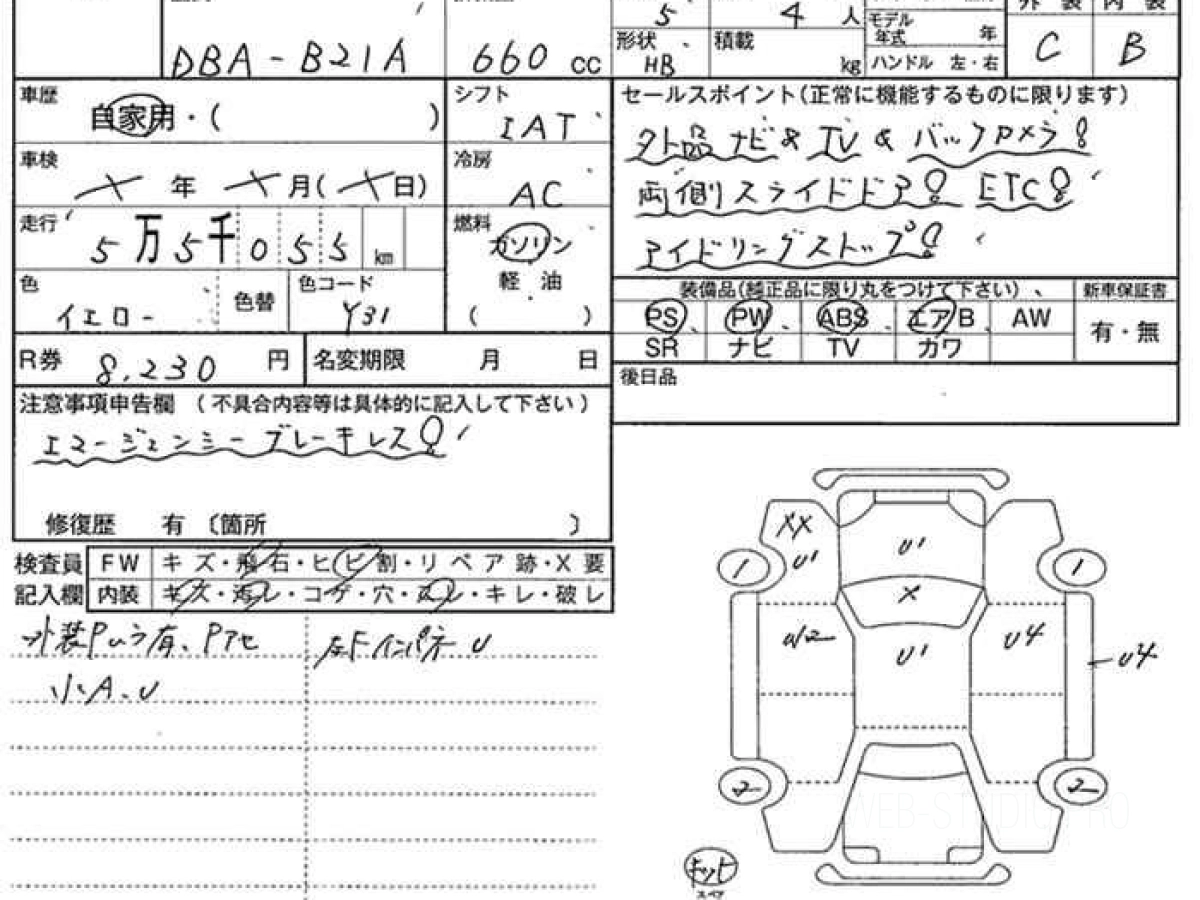 5 4 人 モデル年式 年 外装 内装
DBA-B21A 660 cc 形状 HB 積載 kg ハンドル 左・右 C B
車歴 自家用・( )
シフト IAT
車検 X 年 X 月( X 日)
冷房 AC
走行 5万5千055 km
燃料 ガソリン
軽油
( )
色 イエロー 色替 色コード Y31
R券 8,230 円 名変期限 月 日
注意事項申告欄 (不具合内容等は具体的に記入して下さい)
エマージェンシーブレーキレス!
修復歴 有 〔箇所 〕
セールスポイント(正常に機能するものに限ります)
外品ナビ& TV & バックカメラ!
両側スライドドア! ETC!
アイドリングストップ!
装備品(純正品に限り丸をつけて下さい) 新車保証書
PS PW ABS エアB AW 有・無
SR ナビ TV カワ
後日品
検査員 FW キズ・飛石・ヒビ割・リペア跡・X要
記入欄 内装 キズ・汚レ・コゲ・穴・スレ・キレ・破レ
外装Pムラ有、Pアセ
小A、U
左Fインパネ U
XX
U1 U1
1 1
X
U1 U4 U4
2 2
キット
スペア
WEB-STUDIO.PRO